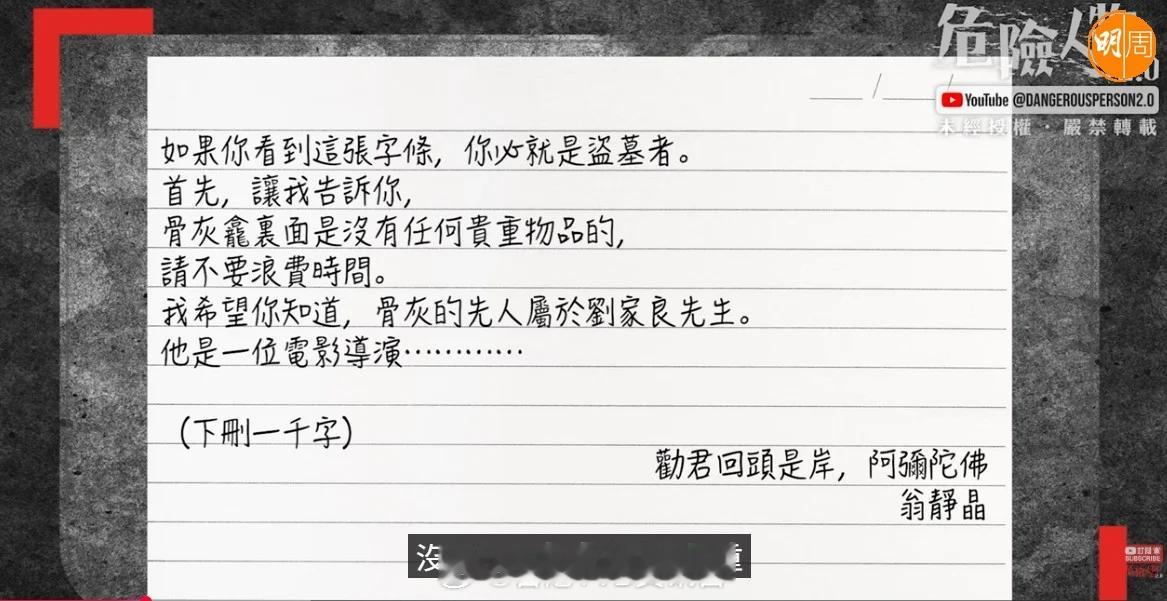 危險人物2.0
明周
YouTube @DANGEROUSPERSON2.0
未經授權·嚴禁轉載
如果你看到這張字條，你必就是盜墓者。
首先，讓我告訴你，
骨灰龕裏面是沒有任何貴重物品的，
請不要浪費時間。
我希望你知道，骨灰的先人屬於劉家良先生。
他是一位電影導演…………
（下刪一千字）
勸君回頭是岸，阿彌陀佛
翁靜晶
訂閱
SUBSCRIBE